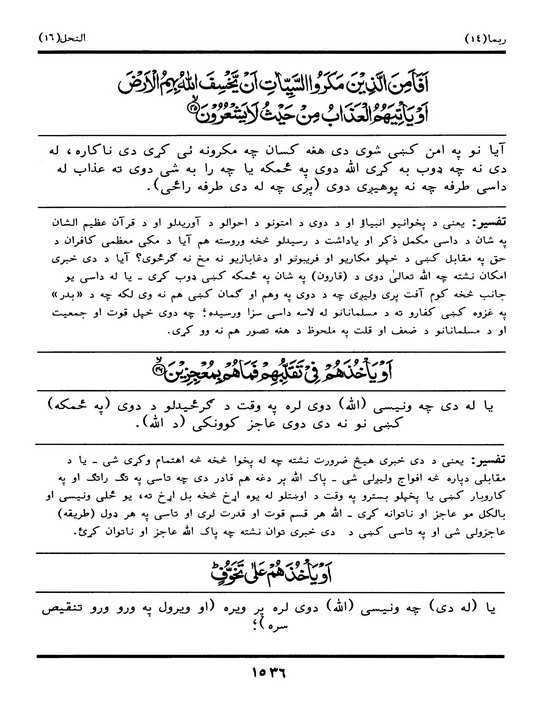 ربما (۱٤)
النحل (۱٦)
اَفَاَمِنَ الَّذِيْنَ مَكَرُوا السَّيِّاٰتِ اَنْ يَّخْسِفَ اللّٰهُ بِهِمُ الْاَرْضَ
اَوْ يَاْتِيَهُمُ الْعَذَابُ مِنْ حَيْثُ لَا يَشْعُرُوْنَ
آيا نو په امن کښی شوی دی هغه کسان چه مکرونه ئی کړی دی ناکاره، له
دی نه چه ډوب به کړی الله دوی په ځمکه يا چه را به شی دوی ته عذاب له
داسی طرفه چه نه پوهيږی دوی (پری چه له دی طرفه راځی).
تفسير: يعنی د پخوانيو انبياؤ او د دوی د امتونو د احوالو د آوريدلو او د قرآن عظيم الشان
په شان د داسی مکمل ذکر او ياداشت د رسيدلو څخه وروسته هم آيا د مکی معظمی کافران د
حق په مقابل کښی د خپلو مکاريو او فريبونو او دغابازيو نه مخ نه گرځوی؟ آيا د دی خبری
امکان نشته چه الله تعالیٰ دوی د (قارون) په شان په ځمکه کښی ډوب کړی ـ يا له داسی يو
جانب څخه کوم آفت پری وليږی چه د دوی په وهم او گمان کښی هم نه وی لکه چه د «بدر»
په غزوه کښی کفارو ته د مسلمانانو له لاسه داسی سزا ورسيده؛ چه دوی خپل قوت او جمعيت
او د مسلمانانو د ضعف او قلت په ملحوظ د هغه تصور هم نه وو کړی.
اَوْ يَاْخُذَهُمْ فِيْ تَقَلُّبِهِمْ فَمَا هُمْ بِمُعْجِزِيْنَ
يا له دی چه ونيسی (الله) دوی لره په وقت د گرځيدلو د دوی (په ځمکه)
کښی نو نه دی دوی عاجز کوونکی (د الله).
تفسير: يعنی د دی خبری هيڅ ضرورت نشته چه له پخوا څخه څه اهتمام وکړی شی ـ يا د
مقابلی دپاره څه افواج وليږلی شی ـ پاک الله پر دغه هم قادر دی چه تاسی په تگ راتگ او په
کاروبار کښی يا پخپلو بسترو په وقت د اوښتلو له يوه اړخ څخه بل اړخ ته، يو ځلی ونيسی او
بالکل مو عاجز او ناتوانه کړی ـ الله هر قسم قوت او قدرت لری او تاسی په هر ډول (طريقه)
عاجزولی شی او په تاسی کښی د دی خبری توان نشته چه پاک الله عاجز او ناتوان کړئ.
اَوْ يَاْخُذَهُمْ عَلٰى تَخَوُّفٍ
يا (له دی) چه ونيسی (الله) دوی لره پر ويره (او ويرول په ورو ورو تنقيص
سره)؛
۱۵۳٦